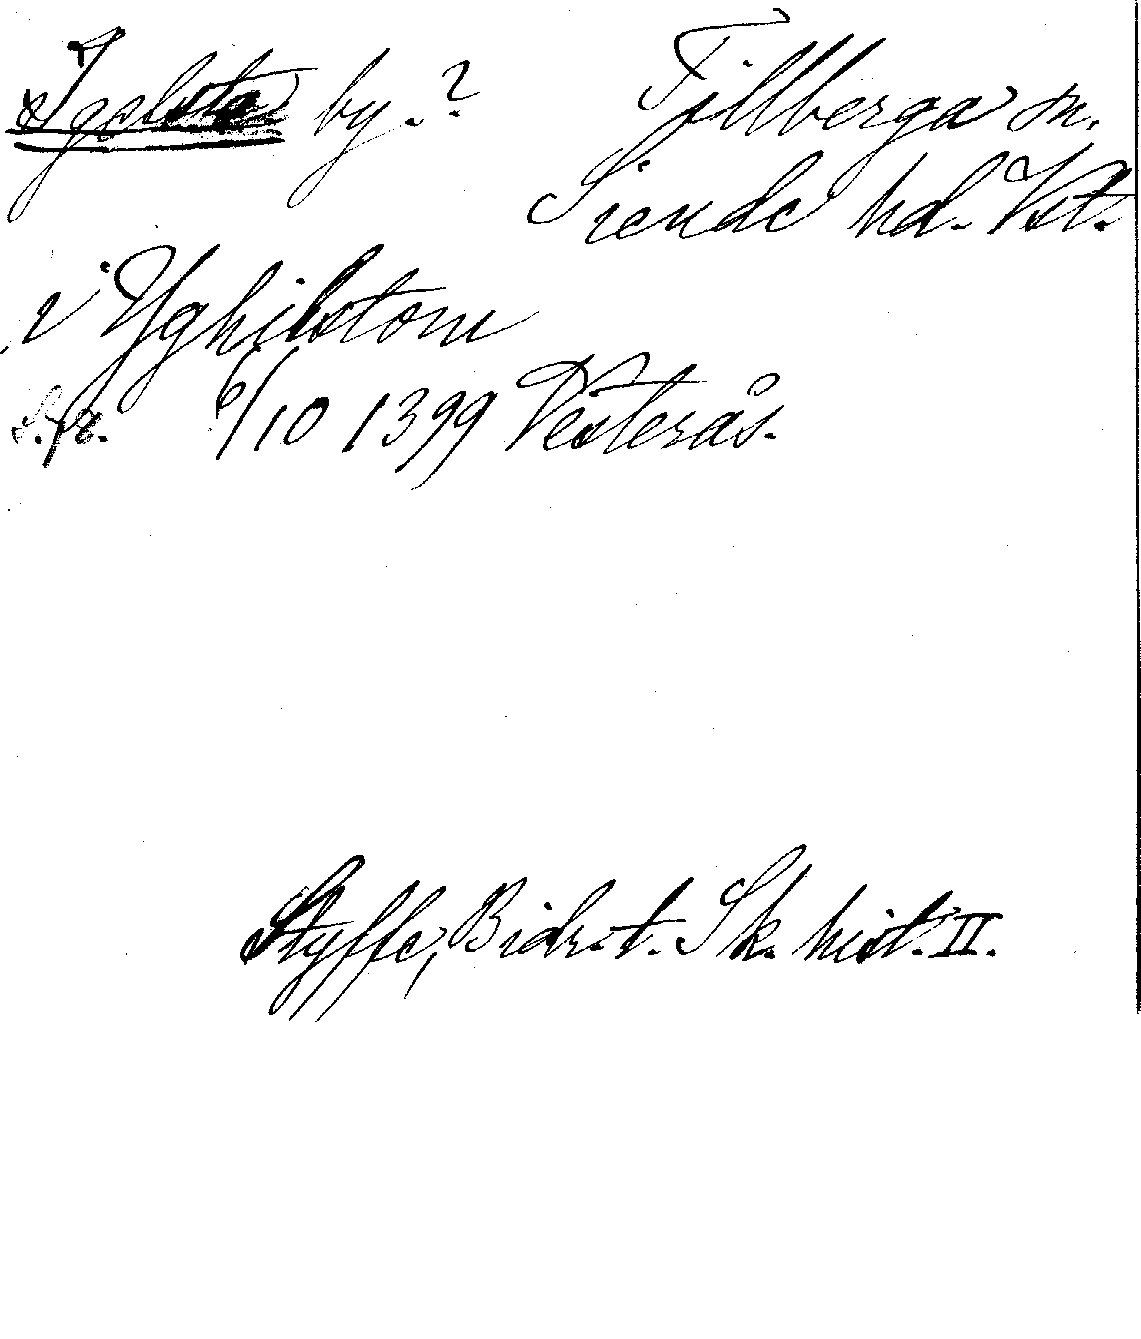 Igelsta by.? Tillberga sn.
Siende hd. Vstl.
i Yghilstom
S.fr. 6/10 1399 Vesterås.
Styffe, Bidr. t. Sk. hist. II.